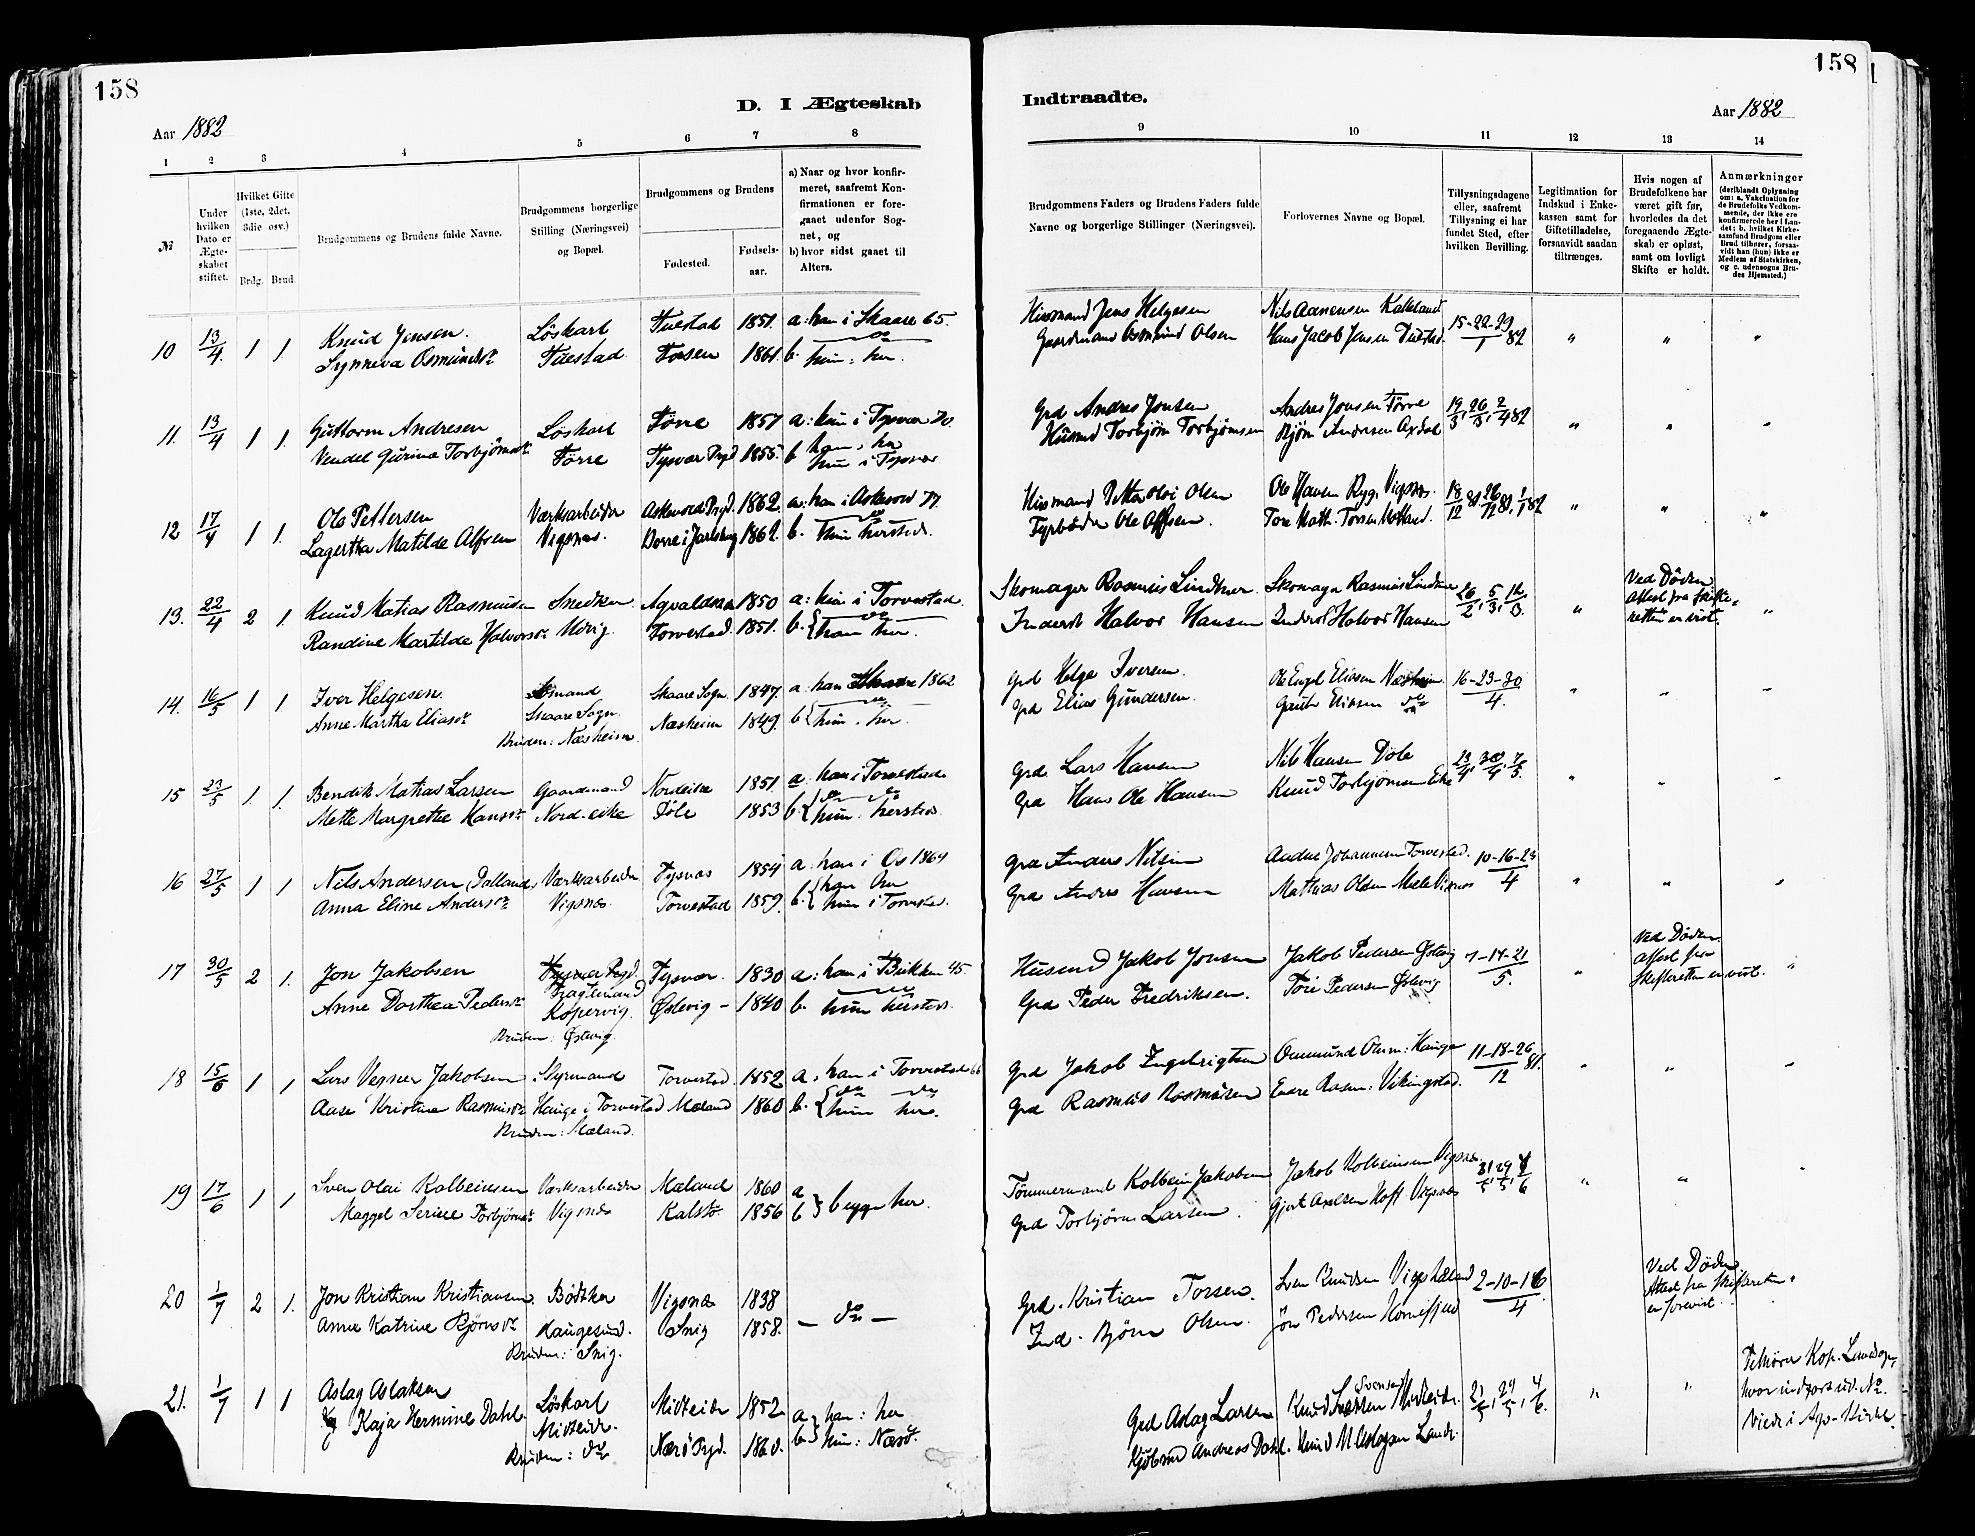 158
158
D. I Ægteskab
Indtraadte.
Aar 1882
Aar 1882
1 2 3 4 5 6 7 8
9 10 11 12 13 14
№
Under hvilken Dato er Ægteskabet stiftet.
Hvilket Gifte (1ste, 2det, 3die osv.)
Brdg. Brud.
Brudgommens og Brudens fulde Navne.
Brudgommens borgerlige Stilling (Næringsvei) og Bopæl.
Brudgommens og Brudens
Fødested.
Fødselsaar.
a) Naar og hvor konfirmeret, saafremt Konfirmationen er foregaaet udenfor Sognet, og
b) hvor sidst gaaet til Alters.
Brudgommens Faders og Brudens Faders fulde Navne og borgerlige Stillinger (Næringsvei).
Forlovernes Navne og Bopæl.
Tillysningsdagene eller, saafremt Tillysning ei har fundet Sted, efter hvilken Bevilling.
Legitimation for Indskud i Enkekassen samt for Giftetilladelse, forsaavidt saadan tiltrænges.
Hvis nogen af Brudefolkene har været gift før, hvorledes da det foregaaende Ægteskab er opløst, samt om lovligt Skifte er holdt.
Anmærkninger
(deriblandt Oplysning om: a. Vakcination for de Brudefolks Vedkommende, der ikke ere konfirmerede her i Landet; b. hvilket Kirkesamfund Brudgom eller Brud tilhører, forsaavidt han (hun) ikke er Medlem af Statskirken, og c. udensogns Brudes Hjemsted.)
10 13/4 1 1 Knud Jensen. Löskarl Tuestad 1851. a: han i Skaare 65. Husmand Jens Helgesen Nils Aanensen Kalleland 15-22-29/1 82 " " "
Synneva Osmundsdr Tuestad Forsen 1861. b. hun: her. Gaardmand Osmund Olsen Hans Jacob Jensen Tuestad
11. 13/4 1 1. Guttorm Andresen Löskarl Förre 1857 a: hun i Tysvær 70. Grd Andres Jonsen Andres Jonsen Förre 19/3, 26/3, 2/4 82 " " "
Vendel Gurina Torbjörnsdr Förre Tysvær Prgd 1855. b han: her hun i Tysvær Husmd Torbjörn Torbjörnsen Björn Andersen Axdal
12 17/4 1 1. Ole Pettersen Værksarbeider Askevold Prgd. 1862. a: han i Askevold 77. Husmand Petter Olai Olsen Ole Hansen Ryg, Vigsnæs. 18/12 81, 26/12 81, 1/1 82 " " "
Lagertha Matilde Alfsen Vigsnæs. Borre i Jarlsberg 1862. b. hun hersteds. Fyrböder Ole Alfsen. Tore Math. Torsen
13. 22/4 2 1. Knud Matias Rasmussen Snedker Avaldsnæs 1850 a: hun i Torvestad. Skomager Rasmus Lindtner. Skomager Rasmus Lindtner 26/2, 5/3, 12/3 " Ved Döden Attest fra Skifteretten er vist. "
Randine Martilde Halvorsdr Torvestad. 1851. b. han her. Inderst Halvor Hansen Inderst Halvor Hansen
14. 16/5 1 1 Iver Helgesen Skaare Sogn. Skaare Sogn. 1847. a: han Skaare 1862 Grd Helge Iversen. Ole Engel Eliasen Næsheim 16-23-30/4. " " "
Anne Martha Eliasdr Bruden: Næsheim. Næsheim 1849. b hun. her. Grd Elias Gundersen. Gaute Eliasen do
15 23/5 1. 1. Bendik Matias Larsen Gaardmand Nordeike 1851. a: han i Torvestad Grd. Lars Hansen Nils Hansen Döle 23/4, 30/4, 7/5. " " "
Mette Margrethe Hansdr Nord-eike Döle 1853 b. hun. hersteds. Grd Hans Ole Hansen Knud Torbjörnsen Eike
16 27/5 1 1 Nils Andersen (Dalland) Værksarbeider Tysvær 1854 a: han i Os 1869 Grd Anders Nilsen Aadne Johannessen Torvestad. 10-16-23/4 " " "
Anna Eline Andersdr Vigsnæs. Torvestad 1859. b. han her hun i Torvestad. Grd Anders Hansen Mathias Olsen Mæle Vigsnæs
17 30/5 2 1. Jon Jakobsen Fragtemand Kopervig. Tysvær. 1830 a: han i Bukken 45. Husmd Jakob Jonsen Jakob Pedersen Östevig 7-14-21/5. " Ved Döden. Attest fra Skifteretten er vist. "
Anne Dorthea Pedersdr Bruden: Östevig. Östevig 1840 b. hun hersteds. Grd Peder Fredriksen. Töre Pedersen Östevig
18 15/6 1 1 Lars Vegner Jakobsen Styrmand Torvestad 1852 a. han i Torvestad 66 Grd Jakob Ingebrigtsen Ommund Olsen: Hauge 11-18-26/12 81. " " "
Aase Kristine Rasmusdr Hauge i Torvestad Mæland 1860 b. hun her. Grd Rasmus Rasmussen Endre Rasm: Vikingstad.
Bruden: Mæland.
19 17/6 1 1 Sven Olai Kolbeinsen Værksarbeider Mæland 1860 a b } begge her. Tömmermand Kolbein Jakobsen Jakob Kolbeinsen Vigsnæs 21/5, 29/5, 4/6 " " "
Maggel Serine Torbjörnsdr Vigsnæs Kalstö. 1856 Grd Torbjörn Larsen. Gjert Axelsen Hoft Vigsnæs
20 1/7 2 1. Jon Kristian Kristiansen. Bödtker Vigsnæs 1838 — do — Grd. Kristian Torsen. Sven Knudsen 2-10-16/4 Ved Döden. Attest fra Skifteretten er forevist. "
Anne Katrine Björnsdr Haugesund. Snig 1858. Ind. Björn Olsen. Jön Pedersen
Bruden: Snig.
21. 1/7 1 1 Aslag Aslaksen Löskarl Midteide 1852 a han: her Grd Aslag Larsen Knud Svensen Midteide. 21/5, 29/5, 4/6. " "
Kaja Hermine Dahl. Midteide. Nærö Prgd. 1860. b hun: Nærö. Kjöbmd Andreas Dahl.
Bruden: do
Tilhörer Kop. Landsogn, hvor indfört ud. No. Viede i Av. Kirke.